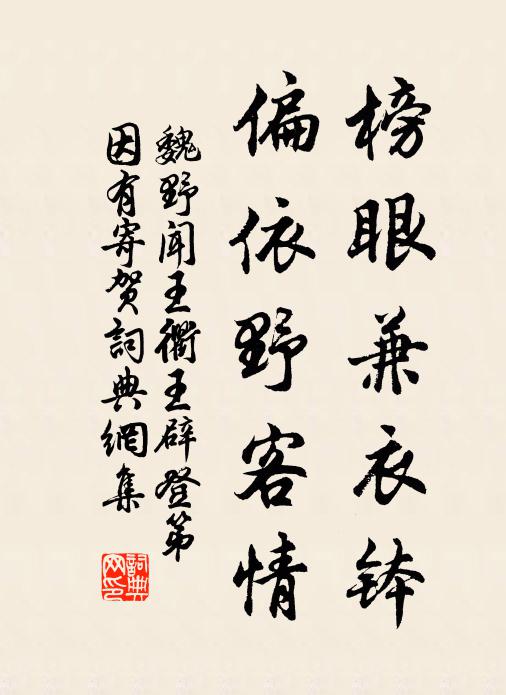 榜眼兼衣钵
偏依野客情
魏野闻王衢王辟登第
因有寄贺詞典網集
詞典网印